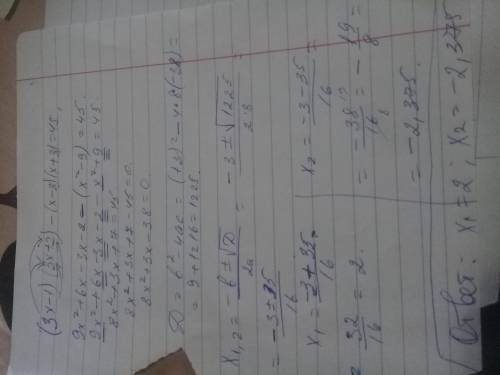 (3x-1)(3x+2)-(x-3)(x+3)=45,
9x²+6x-3x-2-(x²-9)=45.
9x²+6x-3x-2-x²-9=45
8x²+3x+7=45
8x²+3x+7-45=0.
8x²+3x-38=0
D=b²-4ac=(+3)²-4*8(-38)=
=9+1216=1225.
x₁,₂=-b±√D/2a=-3±√1225/2·8
=-3±35/16
x₁=-3+35/16=
=32/16=2.
x₂=-3-35/16=
=-38/16=-19/8
=-2,375.
Ответ: x₁=2; x₂=-2,375